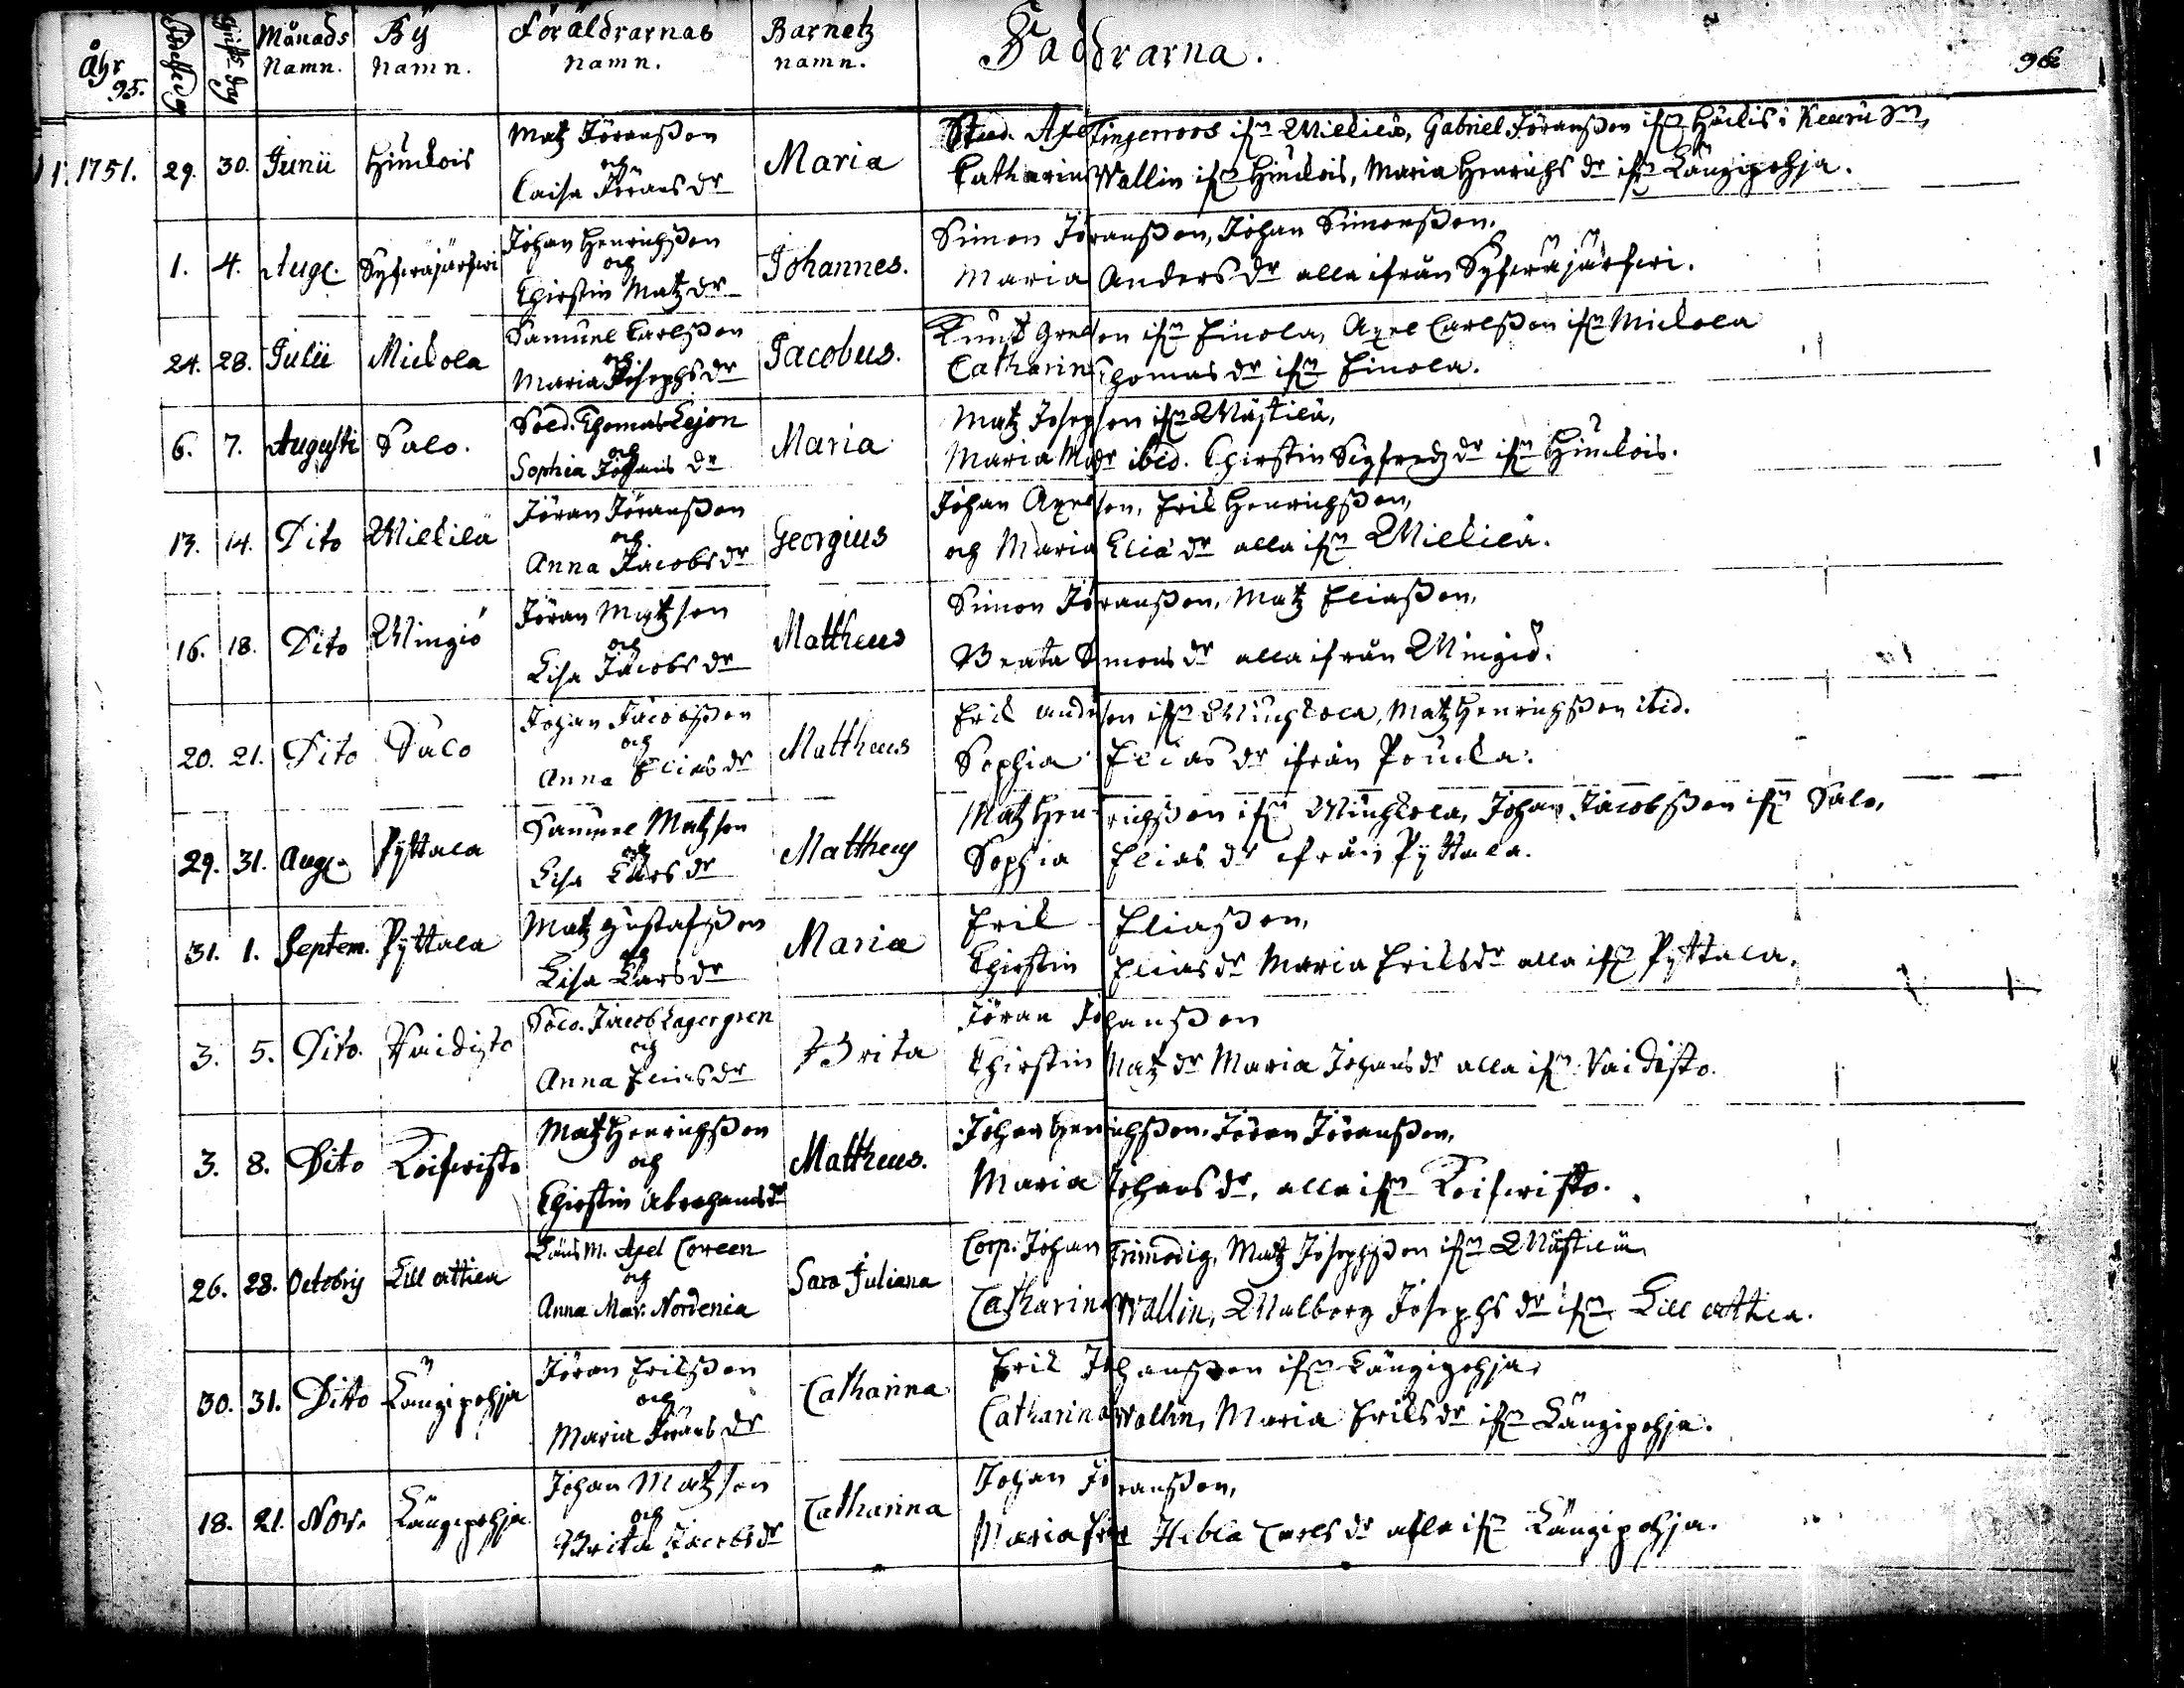 Åhr 95. Månads Namn. By Namn. Föräldrarnas namn. Barnetz namn. Faddrarna. 96
1751. 29. 30. Junii Matz Jöranßon och Caisa Jörans dr Maria Stud. Axel Tingerroos ifrn Mielilä, Gabriel Jöranßon ifrn
Catharin Wallin ifrn Maria Henrichs dr ifrn Längipohja.
1. 4. Aug. Syfwäjärfwi Johan Henrichßon och Chirstin Matz dr Johannes. Simon Jöranßon, Johan Simonßon.
Maria Anders dr alla ifrån Syfwäjärfwi.
24. 28. Julii Mickola Samuel Carlßon och Maria Josephs dr Jacobus. Knut ifrn Finola, Axel Carlßon ifrn Mickola
Catharin Thomas dr ifrn Finola.
6. 7. Augusti Salo. Sold. Thomas Lejon och Sophia Johans dr Maria Matz Josepson ifrn Mästilä,
Maria ibid. Chirstin Sigfredz dr ifrn
13. 14. Dito Mielilä Jöran Jöranßon och Anna Jacobs dr Georgius Johan Axelson, Erik Henrichßon,
och Maria Eliä dr alla ifrn Mielilä.
16. 18. Dito Mingiö Jöran Matzson och Lisa Jacobs dr Mattheus Simon Jöranßon, Matz Eliaßon,
Beata Simons dr alla ifrån Mingiö.
20. 21. Dito Salo Johan Jacobßon och Anna Elias dr Mattheus Erik ifrn Matz Henrichßon ibid.
Sophia Elias dr ifrån
29. 31. Aug. Pyttala Samuel Matzson och Lisa Lars dr Mattheus Matz Henrichßon ifrn Johan Jacobßon ifrn Salo,
Sophia Elias dr ifrån Pyttala.
31. 1. Septem. Pyttala Matz Gustafßon och Lisa Lars dr Maria Erik Eliaßon,
Chirstin Elias dr Maria Eriks dr alla ifrn Pyttala.
3. 5. Dito. Vaidisto Sold. Jacob Lagergren och Anna Elias dr Brita Jöran Johanßon
Chirstin Matz dr Maria Johans dr alla ifrn Vaidisto.
3. 8. Dito Koifwisto Matz Henrichßon och Chirstin Abrahams dr Mattheus. Johan Henrichßon. Jöran Jöranßon,
Maria Johans dr, alla ifrn Koifwisto.
26. 28. Octobris Lill attila Axel Coreen och Anna Mar. Nordenia Sara Juliana Corp. Johan Frimodig, Matz Josephßon ifrn Mästilä
Catharina Wallin, Walborg Josephs dr ifrn Lill attila.
30. 31. Dito Längipohja Jöran Erikßon och Maria Jörans dr Catharina Erik Johanßon ifrn Längipohja,
Catharina Wallin, Maria Eriks dr ifrn Längipohja.
18. 21. Nov. Längipohja Johan Matzson och Brita Jacobs dr Catharina Johan Jöranßon,
Maria Hebla Carls dr alla ifrn Längipohja.